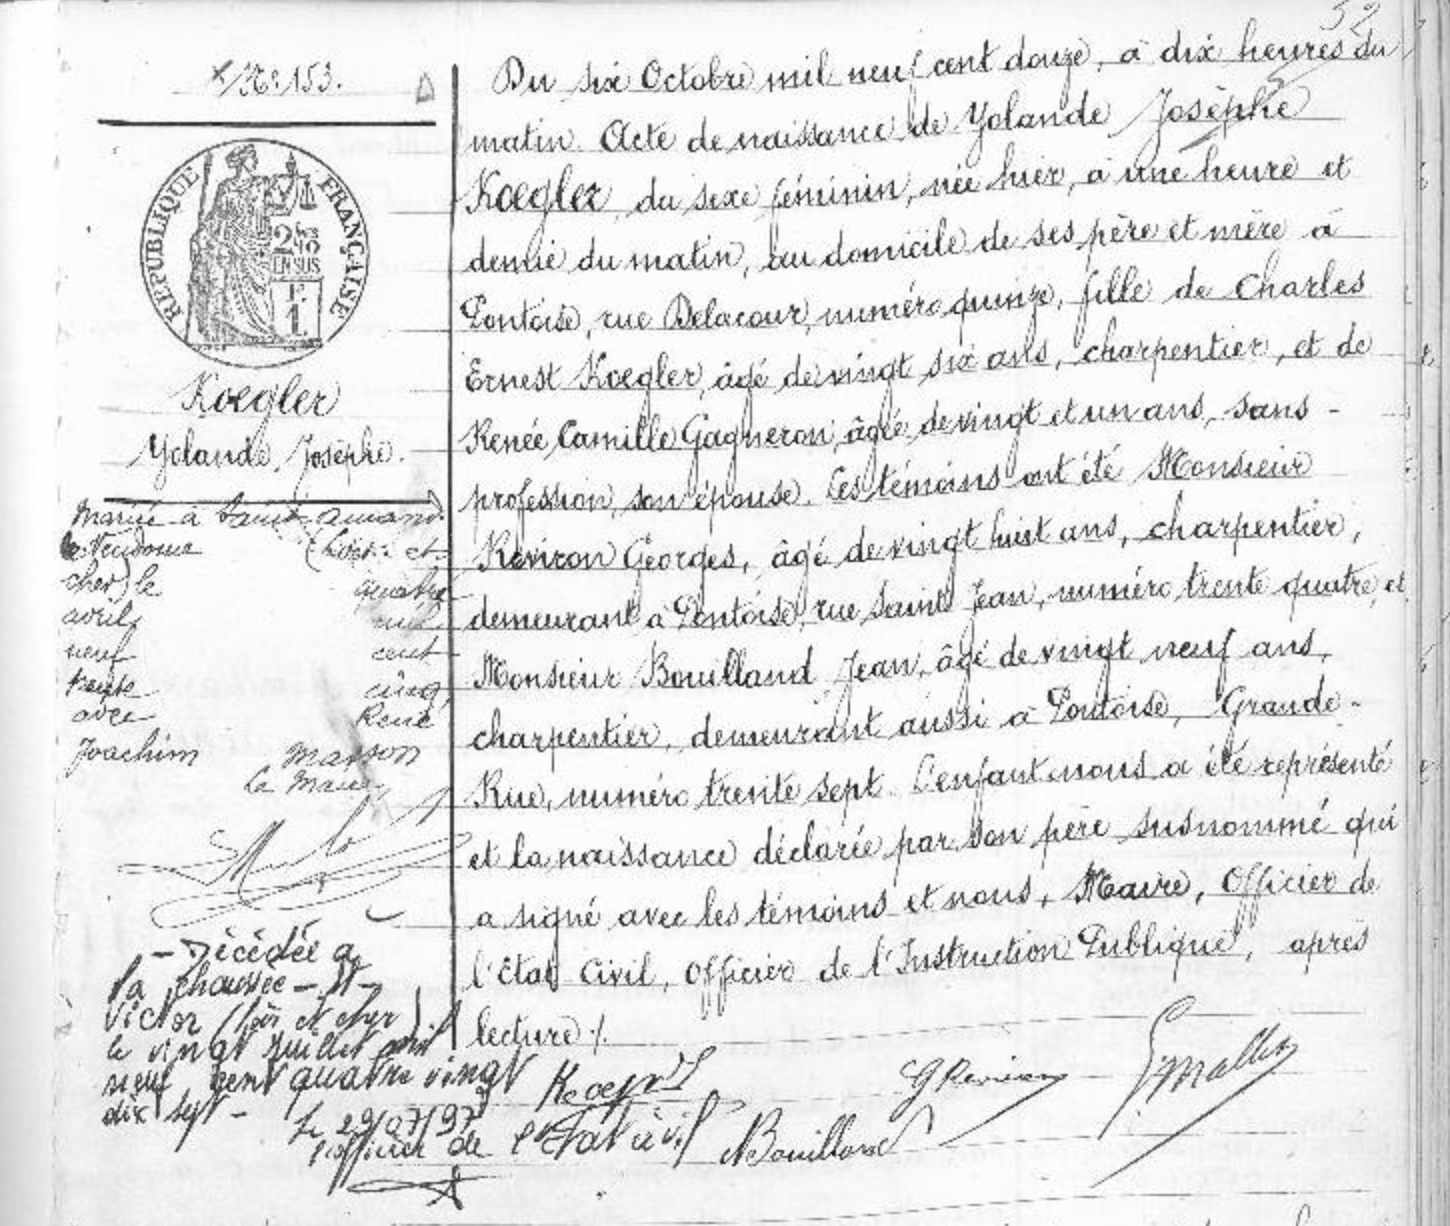 52
N° 153.
REPUBLIQUE FRANÇAISE
2 fcs 40
EN SUS
1 F
Koegler
Yolande, Josèphe.
Mariée à Saint-Amand-
de-Vendome (Loir-et-
cher) le quatre
avril mil
neuf cent
trente cinq
avec René
Joachim Marson
Le Maire
- Décédée à
La chaussée - St -
Victor (Loir et cher)
le vingt juillet mil
neuf cent quatre vingt
dix sept -
Le 29/07/97
l'officier de l'état civil
Du six Octobre mil neuf cent douze, à dix heures du
matin. Acte de naissance de Yolande Josèphe
Koegler, du sexe féminin, née hier, à une heure et
demie du matin, au domicile de ses père et mère à
Pontoise, rue Delacour, numéro quinze, fille de Charles
Ernest Koegler, âgé de vingt six ans, charpentier, et de
Renée Camille Gagneron, âgée de vingt et un ans, sans -
profession, son épouse. Les témoins ont été Monsieur
Reviron Georges, âgé de vingt huit ans, charpentier,
demeurant à Pontoise, rue Saint Jean, numéro trente quatre, et
Monsieur Bouilland Jean, âgé de vingt neuf ans,
charpentier, demeurant aussi à Pontoise, Grande -
Rue, numéro trente sept. L'enfant nous a été représenté
et la naissance déclarée par son père susnommé qui
a signé avec les témoins et nous, Maire, Officier de
l'Etat Civil, Officier de l'Instruction Publique, après
lecture ./.
Koegler
G Reviron
Bouilland